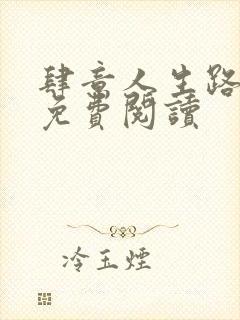 肆意人生路
免費閱讀
冷玉煙